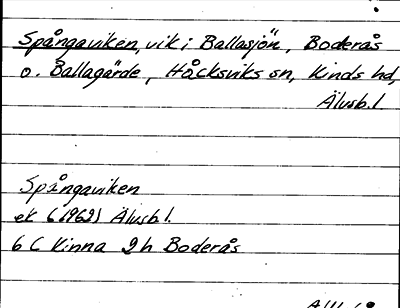 Spångaviken, vik i Ballasjön, Boderås
o. Ballagärde, Håcksviks sn, Kinds hd,
Älvsb.l.
Spångaviken
ek (1962) Älvsb l.
6 C Kinna 2h Boderås